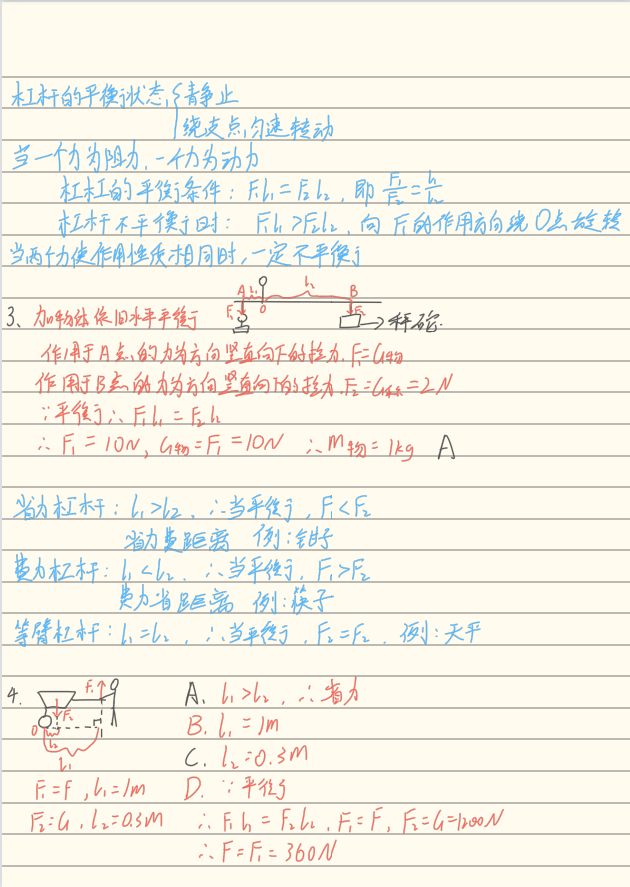 杠杆的平衡状态{静止
绕支点匀速转动
当一个力为阻力,一个力为动力
杠杠的平衡条件:F₁l₁=F₂l₂,即 F₁/F₂=l₂/l₁
杠杆不平衡时:F₁l₁>F₂l₂,向F₁的作用方向绕O点旋转
当两个力使作用性质相同时,一定不平衡
A l₁ l₂ B
F₁ O F₂
3、加物体依旧水平平衡 →秤砣.
作用于A点的力为方向竖直向下的拉力.F₁=G物
作用于B点的力为方向竖直向下的拉力.F₂=G秤=2N
∵平衡∴F₁l₁=F₂l₂
∴F₁=10N,G物=F₁=10N ∴m物=1kg A
省力杠杆:l₁>l₂,∴当平衡,F₁<F₂
省力费距离 例:钳子
费力杠杆:l₁<l₂.∴当平衡,F₁>F₂
费力省距离 例:筷子
等臂杠杆:l₁=l₂,∴当平衡,F₂=F₂.例:天平
4.
F₁
F₂
O l₂
l₁
A. l₁>l₂,∴省力
B. l₁=1m
C. l₂=0.3M
F₁=F,l₁=1m D. ∵平衡
F₂=G,l₂=0.3M ∴F₁l₁=F₂l₂,F₁=F,F₂=G=1200N
∴F=F₁=360N